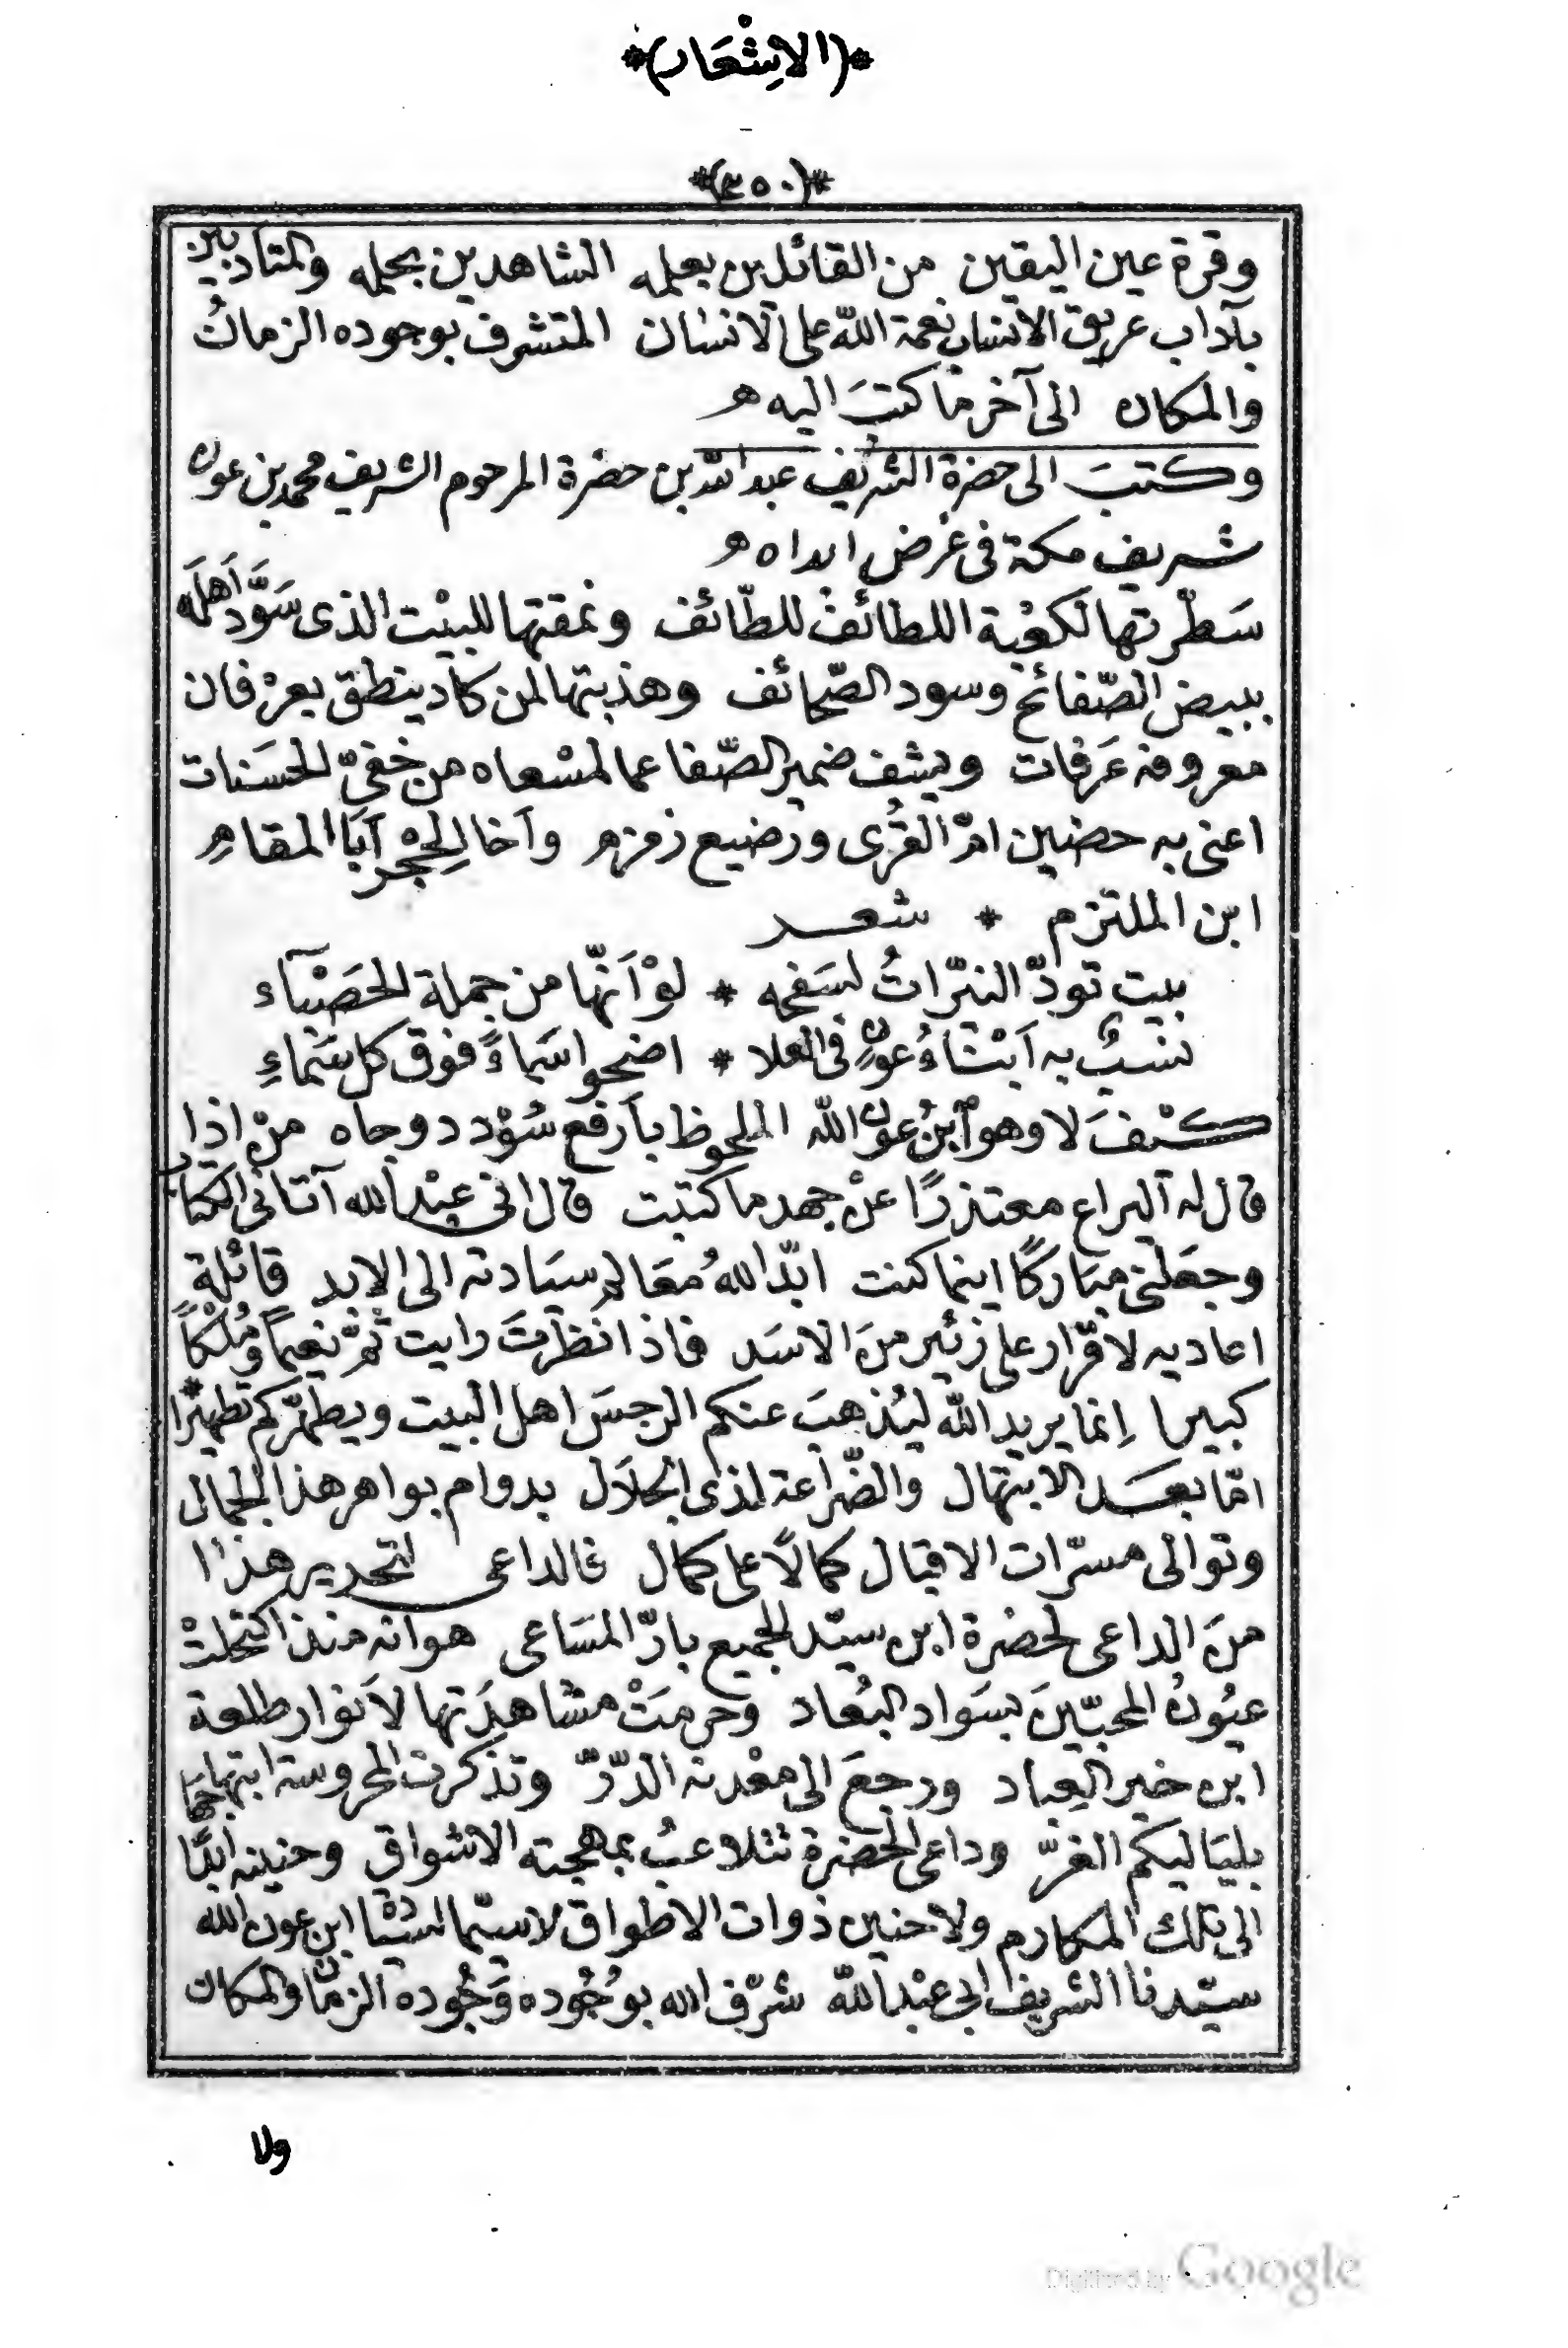 *(الاِشْعَار)*
*(٣٥٠)*
وقرة عين اليقين من القائلين بعلمه الشاهدين بحلمه والمتادبين
بآداب عريق الانسان نعمة الله على الانسان المتشرف بوجوده الزمانُ
والمكان الى آخر ما كتبَ اليه ھ
وكتبَ الى حضرة الشريف عبد الله بن حضرة المرحوم الشريف محمد بن عون
شريف مكة فى غرض ابداه ھ
سَطّرتها لكعْبة اللطائف للطّائف ونمقتها للبيْت الذى سَوَّد اَهلَه
ببيض الصّفائح وسود الصّحائف وهذبتها لمن كاد ينطق بعرْفان
معروفه عَرَفات ويشف ضمير الصّفا عما لمسْعاه من خفىّ الحسَنات
اعنى به حضين امّ القُرى ورضيع زمزم وآخا الحِجْر اَبا المقامِ
ابن الملتزم * شعر
بيت تودّ النيّراتُ لسَفحه * لوْ اَنّها من جملة الحَصْبآء
نسَبٌ به اَبْنَاءُ عونٍ فى العلا * اضحوا سَماءً فوق كل سَماءِ
كيْفَ لا وهو اَبنُ عون الله الملحوظ باَرفع سُوْدد وجاه منْ اذا
قال له اليراع معتذرًا عنْ جهد ما كتبت قال انى عبْد الله آتانى الكتاب
وجعَلنى مبَاركًا اينما كنت ابّد اللهُ مَعَالم سيَادته الى الابد قائلة
اعاديه لا قرّار على زئير منَ الاسَد فاذا نظرتَ رايت ثمَّ نعيمًا ومُلْكًا
كبيرا اِنما يريد الله ليُذهبَ عنكم الرجسَ اهل البيت ويطهّركم تطهيرًا *
امّا بعَد الابتهال والضّراعة لذى الجلَال بدوام بواهر هذا الجمال
وتوالى مسرّات الاقبال كمالاً على كمال فالداعى لتحرير هذا
منَ الداعى لحضرة ابن سيّد الجميع بارّ المسَاعى هو انه منذ اكتحلتْ
عيُونُ المحبّينَ بسَواد البُعاد وحرمَتْ مشاهدَتها لاَنوار طلعة
ابن خير العِباد ورجعَ الى معْدنه الدّرّ وتذكرت المحروسة ابتهاجهَا
بليَاليكم الغرّ وداعى الحضرة تتلاعبُ بمهجته الاشواق وحنينه ابدًا
الى تلك المكارم ولا حنين ذوات الاطواق لا سيّما لسيّادة ابن عون الله
سيّدنا الشريف ابى عبْد الله شرّف الله بوُجُوده وَجُوده الزمَان والمكان
ولا
Digitized by Google